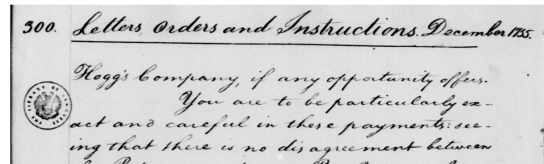 300. Letters, Orders and Instructions. December 1755.
Hogg's Company, if any opportunity offers.
You are to be particularly ex-
act and careful in these payments: see-
ing that there is no disagreement between